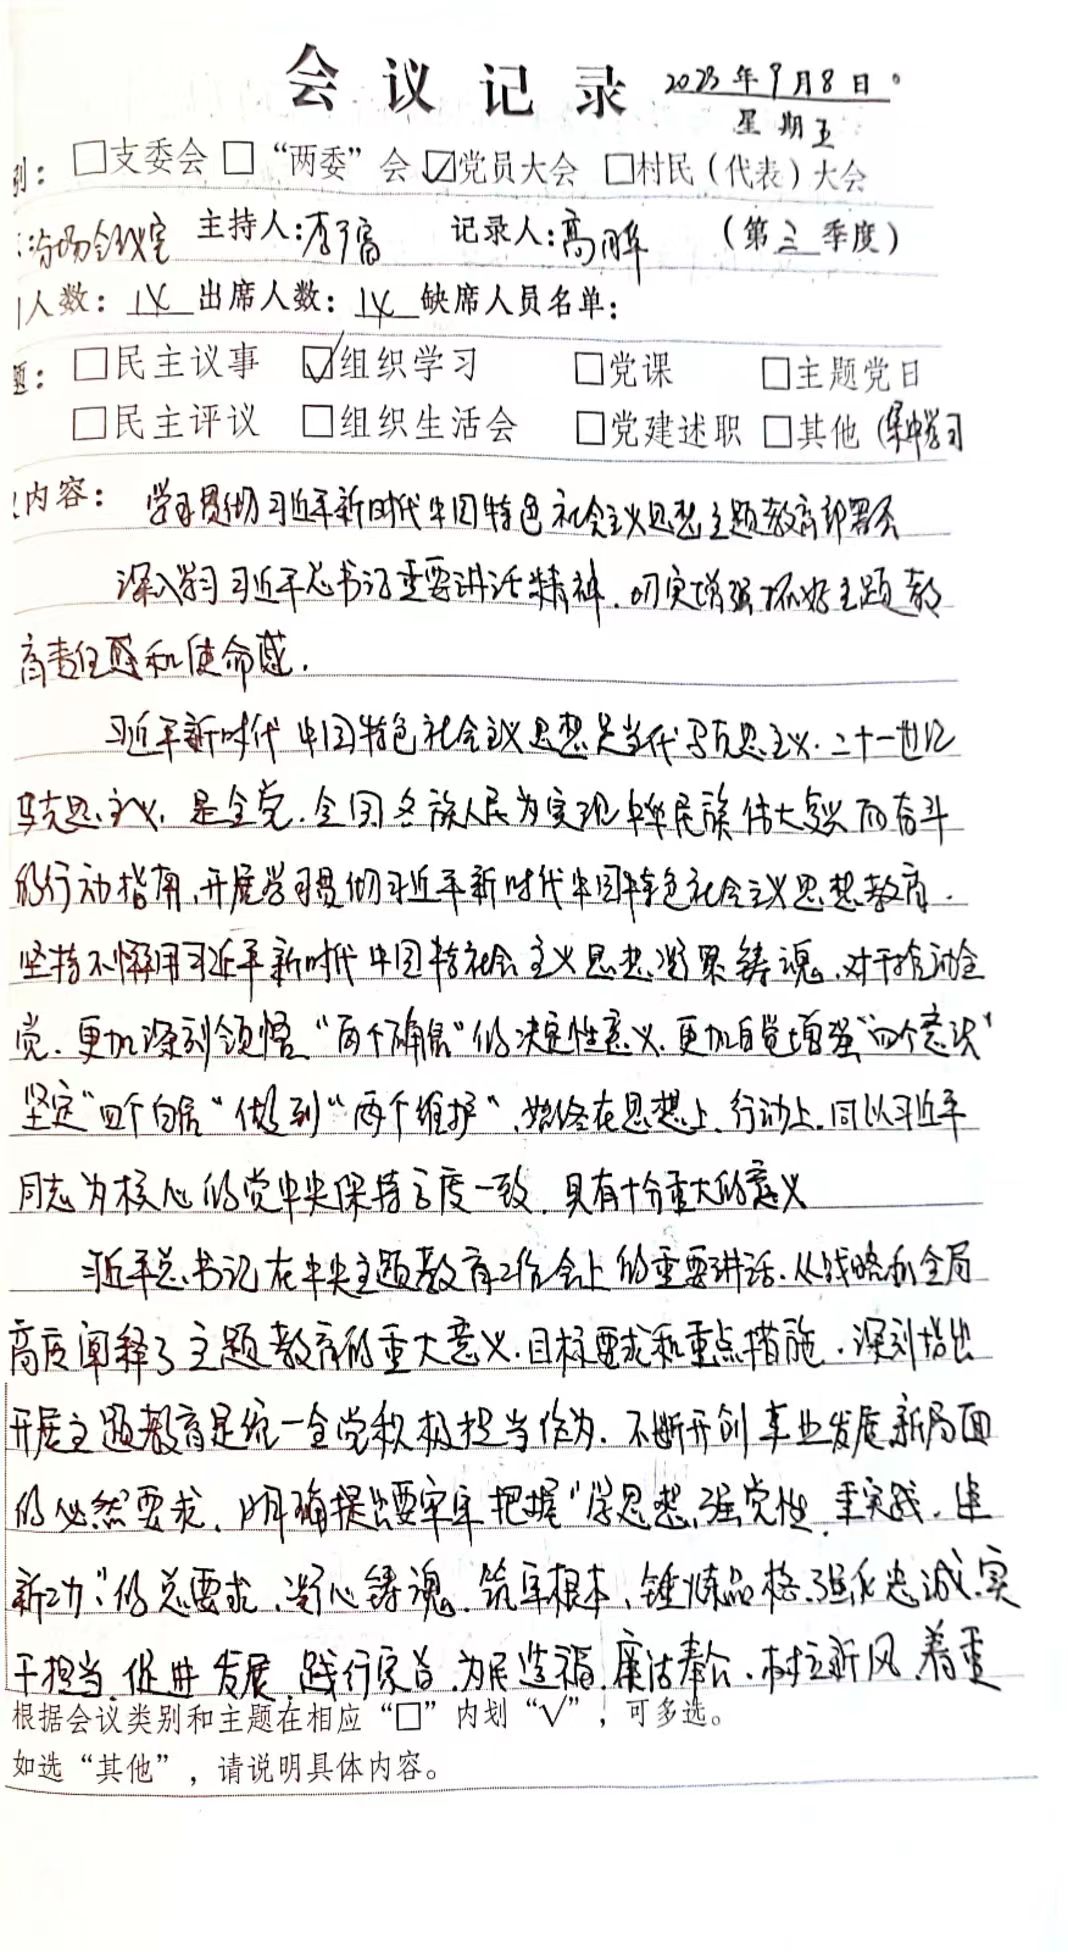 会议记录 2023年9月8日
星期五
别：□支委会 □“两委”会 ☑党员大会 □村民（代表）大会
：分场会议室 主持人：李富 记录人：高 （第三季度）
人数：1X 出席人数：1X 缺席人员名单：
题：□民主议事 ☑组织学习 □党课 □主题党日
□民主评议 □组织生活会 □党建述职 □其他（集中学习
内容：学习贯彻习近平新时代中国特色社会主义思想主题教育部署会
深入学习习近平总书记重要讲话精神，切实增强抓好主题教
育责任感和使命感．
习近平新时代中国特色社会主义思想是当代马克思主义．二十一世纪
马克思主义，是全党．全国各族人民为实现中华民族伟大复兴而奋斗
的行动指南，开展学习贯彻习近平新时代中国特色社会主义思想教育．
坚持不懈用习近平新时代中国特社会主义思想凝聚铸魂，对于推动全
党．更加深刻领悟“两个确信”的决定性意义．更加自觉增强“四个意识”
坚定“四个自信”做到“两个维护”，始终在思想上．行动上．同以习近平
同志为核心的党中央保持高度一致，具有十分重大的意义
习近平总书记在中央主题教育工作会上的重要讲话．从战略和全局
高度阐释了主题教育的重大意义．目标要求和重点措施．深刻指出
开展主题教育是统一全党积极担当作为．不断开创事业发展新局面
的必然要求，明确提出要牢牢把握“学思想，强党性，重实践，建
新功”的总要求，凝心铸魂．筑牢根本，锤炼品格．强化忠诚，实
干担当，促进发展，践行宗旨．为民造福，廉洁奉公．树立新风，着重
根据会议类别和主题在相应“□”内划“√”，可多选。
如选“其他”，请说明具体内容。